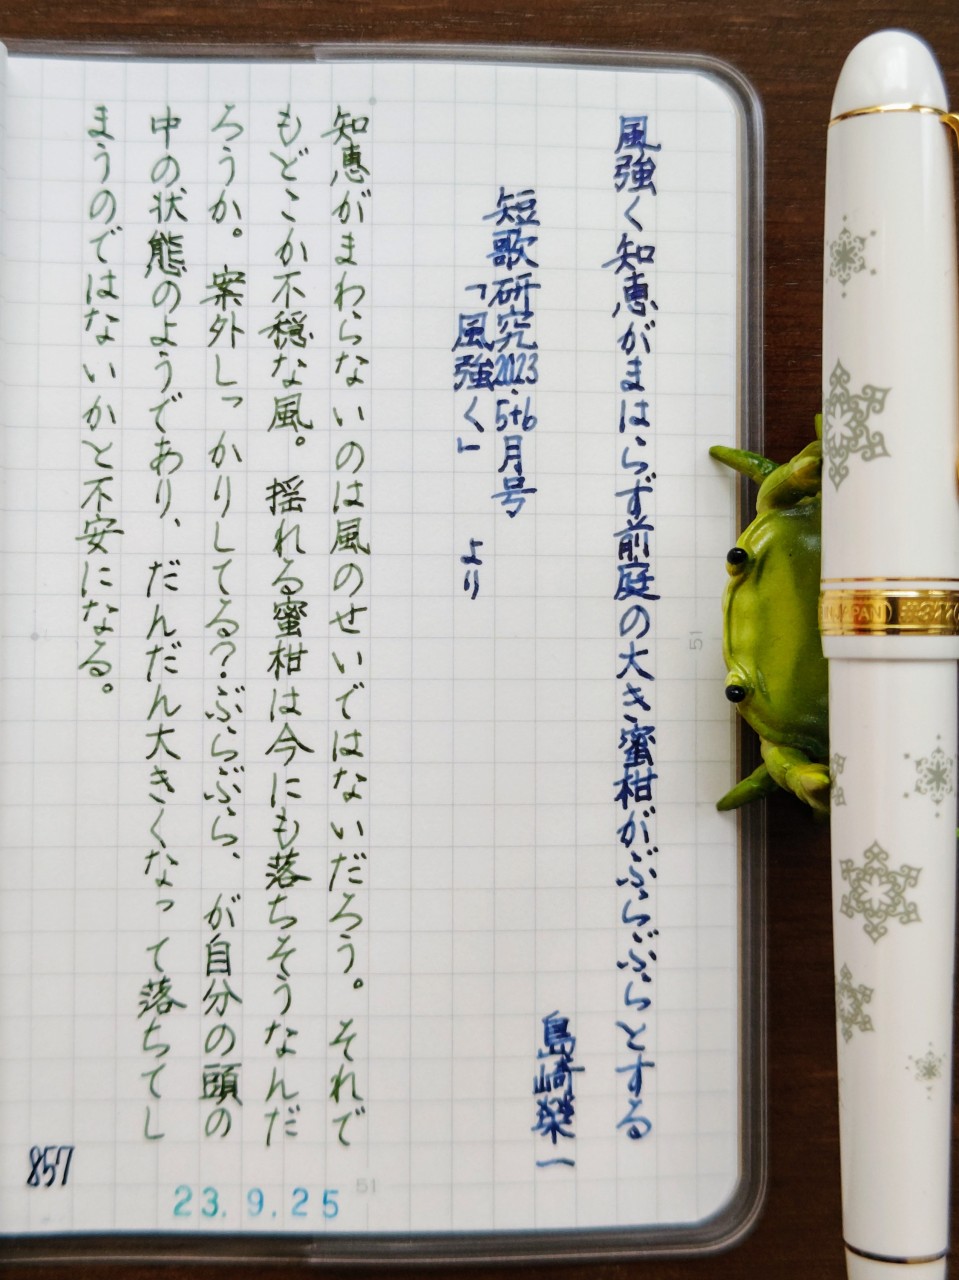 風強く知恵がまはらず前庭の大き蜜柑がぶらぶらとする
島崎榮一
短歌研究2023.5+6月号
「風強く」より
知恵がまわらないのは風のせいではないだろう。それで
もどこか不穏な風。揺れる蜜柑は今にも落ちそうなんだ
ろうか。案外しっかりしてる?ぶらぶら、が自分の頭の
中の状態のようであり、だんだん大きくなって落ちてし
まうのではないかと不安になる。
857
23.9.25
51
51
JAPAN